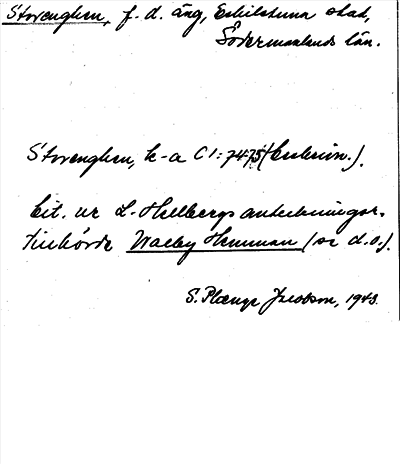 Storenghen, f. d. äng, Eskilstuna stad,
Södermanlands län.
Storenghen, k-a C1: 7475 (Eskilstun.).
Cit. ur L. Hellbergs anteckningar.
Tillhörde Nacby Hemman (se d.o.).
S. Plænge Jacobson, 1943.